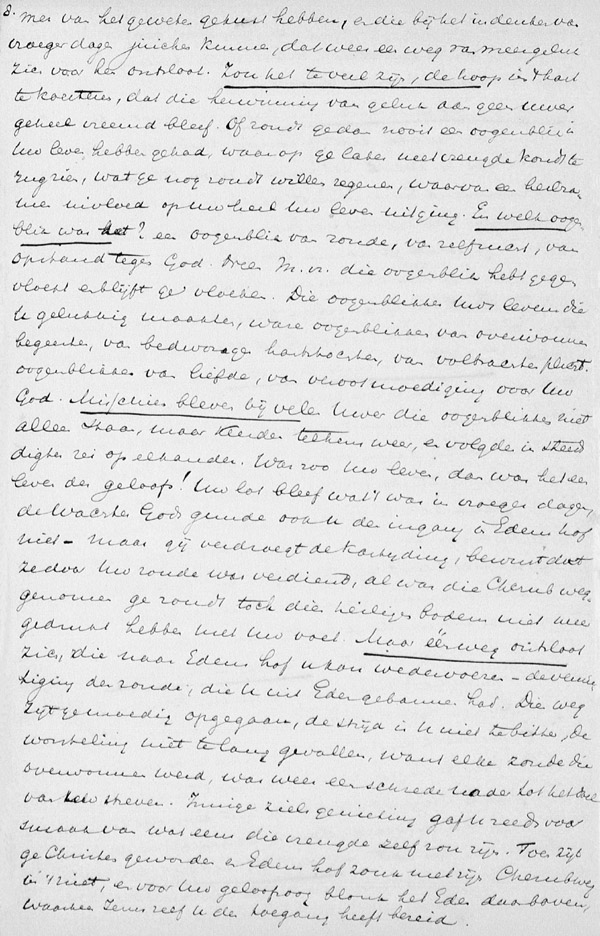 8. men van het geweten gekust hebben, en die bij het indenken van
vroeger dagen juichen kunnen, dat weer een weg van meer geluk
zich voor hen ontsloot. Zou het te veel zijn, de hoop in 't hart
te koesteren, dat die herwinning van geluk aan geen uwer
geheel vreemd bleef. Of zoudt ge dan nooit een oogenblik in
Uw leven hebben gehad, waarop ge later met vreugde kondt
terugzien, wat ge nog zoudt willen zegenen, waarvan een
invloed op Uw heel Uw leven uitging. En welk oogen-
blik was het? een oogenblik van zonde, van zelfzucht, van
opstand tegen God. Neen M. vr. die oogenblikken hebt ge
vloekt en blijft ge vloeken. Die oogenblikken Uws levens die
U gelukkig maakten, waren oogenblikken van overwonnen
begeerte, van bedwongen hartstochten, van volbrachten plicht.
oogenblikken van liefde, van verootmoediging voor Uw
God. Misschien bleven bij velen Uwer die oogenblikken niet
alleen staan, maar keerden telkens weer, en volgden in
rei op elkander. Was zoo Uw leven, dan was het een
leven des geloofs! Uw lot bleef wat 't was in vroeger dagen,
de Wachter Gods gunde ook U den ingang in Edens hof
niet – maar gij verdroegt de kastijding, bewust dat
ze door Uw zonde was verdiend, al was die Cherub weg-
genomen ge zoudt toch dien heiligen bodem niet meer
gedrukt hebben met Uw voet. Maar één weg ontsloot
zich, die naar Edens hof U kan wedervoeren – de vernie-
tiging der zonde, die U uit Eden gebannen had. Die weg
zijt ge moedig opgegaan, de strijd is U niet te bitter, de
worsteling niet te lang gevallen, want elke zonde die
overwonnen werd, was weer een schrede nader tot het doel
van Uw streven. Innige zielsgenieting gaf U reeds voor
smaak van wat eens die vreugde zelf zou zijn. Toen zijt
ge Christen geworden en Edens hof zonk met zijn Cherub weg
in 't niet, en voor Uw geloofsoog blonk het Eden daarboven,
waartoe Jezus zelf U den toegang heeft bereid.